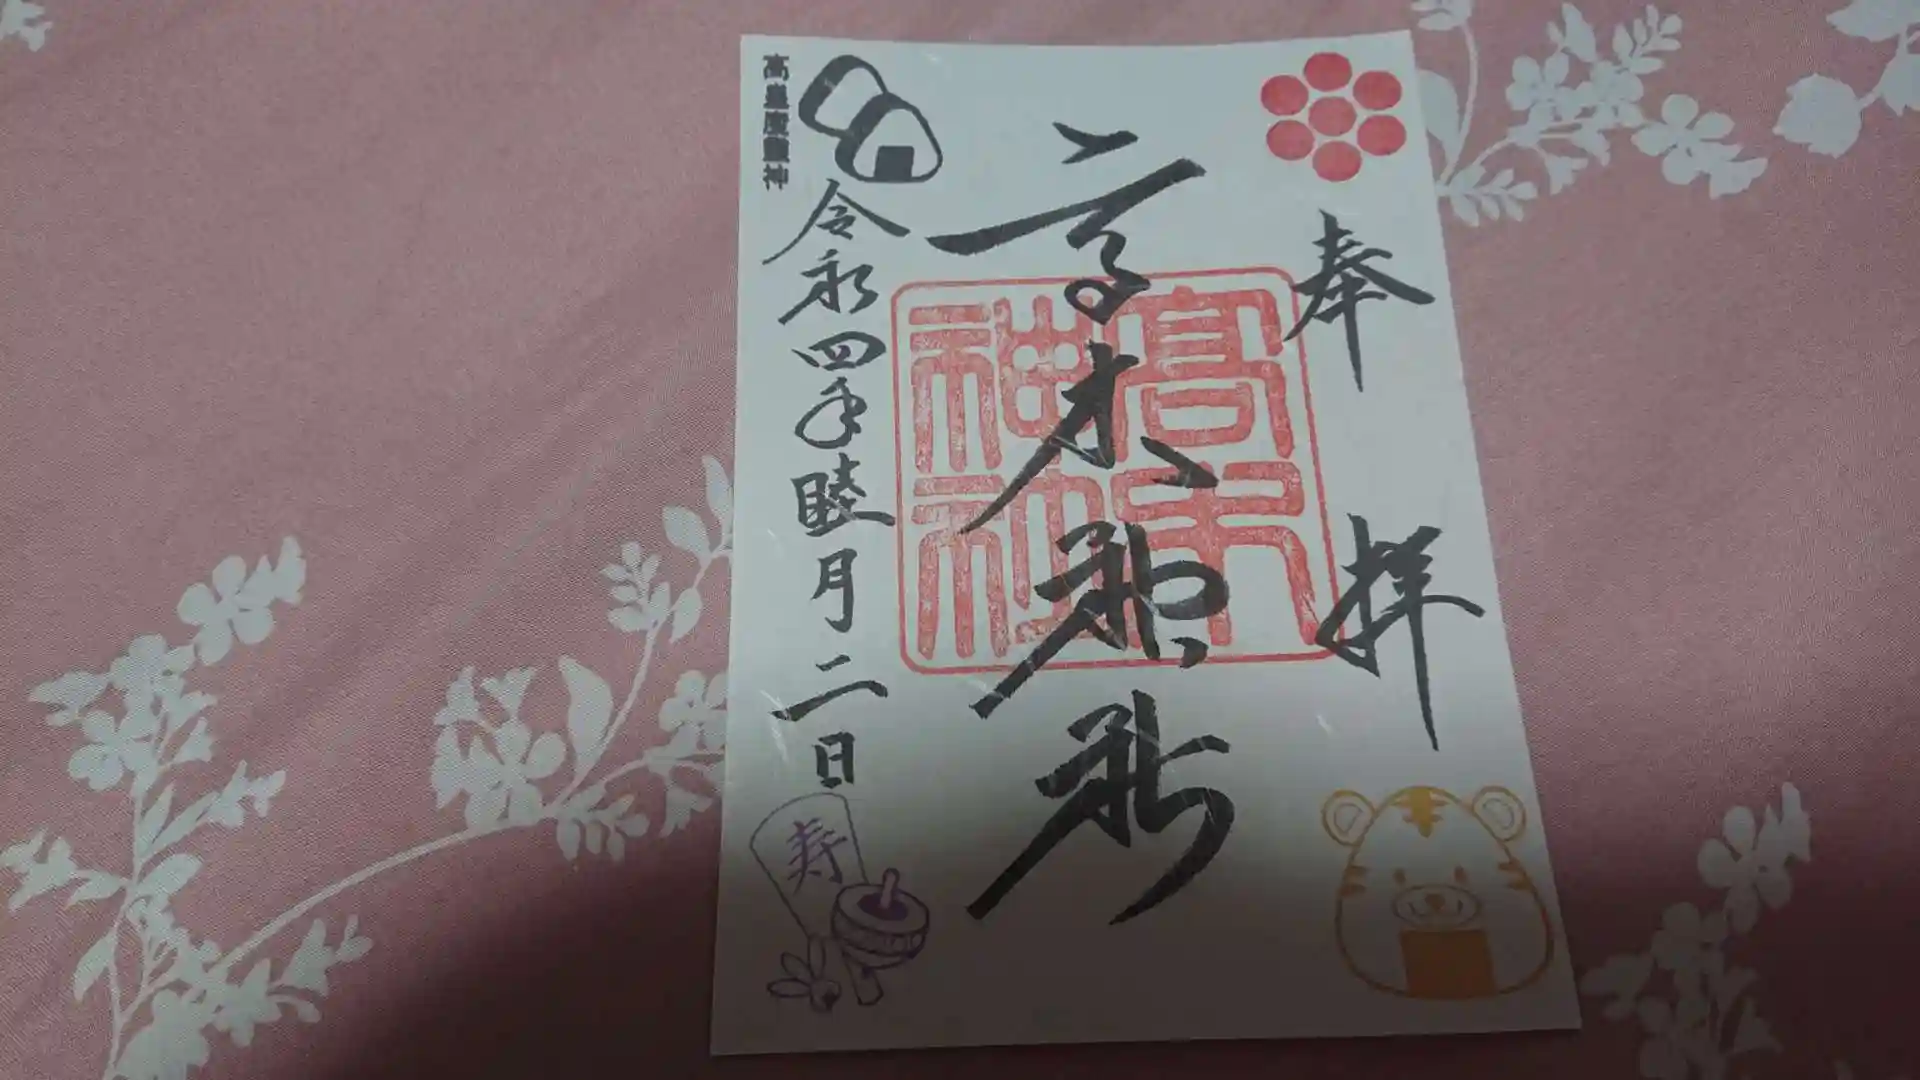 奉拝
高木神社
高木神社
令和四年睦月二日
高皇産靈神
寿